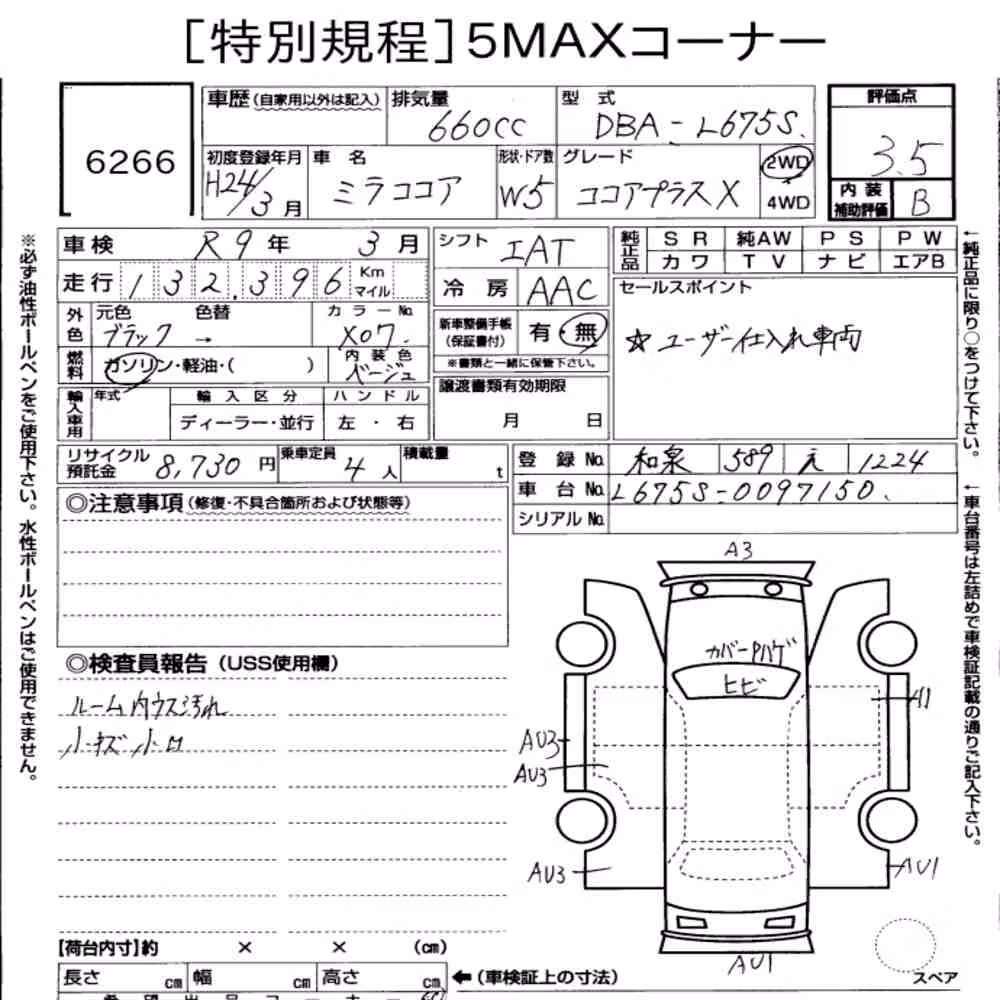 [特別規程]5MAXコーナー
6266
車歴(自家用以外は記入) 排気量 660CC 型式 DBA-L675S. 評価点 3.5
初度登録年月 H24/3月 車名 ミラココア 形状・ドア数 W5 グレード ココアプラスX 2WD 4WD 内装補助評価 B
車検 R9年 3月
走行 132,396 Km マイル
外色 元色 ブラック 色替 → カラーNo. X07.
燃料 ガソリン・軽油・( ) 内装色 ベージュ
輸入車用 年式 輸入区分 ディーラー・並行 ハンドル 左・右
シフト IAT
冷房 AAC
新車整備手帳(保証書付) 有・無
※書類と一緒に保管下さい。
譲渡書類有効期限
月 日
純正品 SR 純AW PS PW
カワ TV ナビ エアB
セールスポイント
☆ユーザー仕入れ車両
リサイクル預託金 8,730円 乗車定員 4人 積載量 t
登録No. 和泉 589 え 1224
車台No. L675S-0097150.
シリアルNo.
◎注意事項(修復・不具合箇所および状態等)
◎検査員報告(USS使用欄)
ルーム内ウス汚れ
小キズ小凹
A3
カバーPハゲ
ヒビ
A1
AU3
AU3
AU3
AU1
AU1
スペア
【荷台内寸】約 × × (cm)
長さ cm 幅 cm 高さ cm ←(車検証上の寸法)
※必ず油性ボールペンをご使用下さい。水性ボールペンはご使用できません。
←純正品に限り○をつけて下さい。
←車台番号は左詰めで車検証記載の通りご記入下さい。